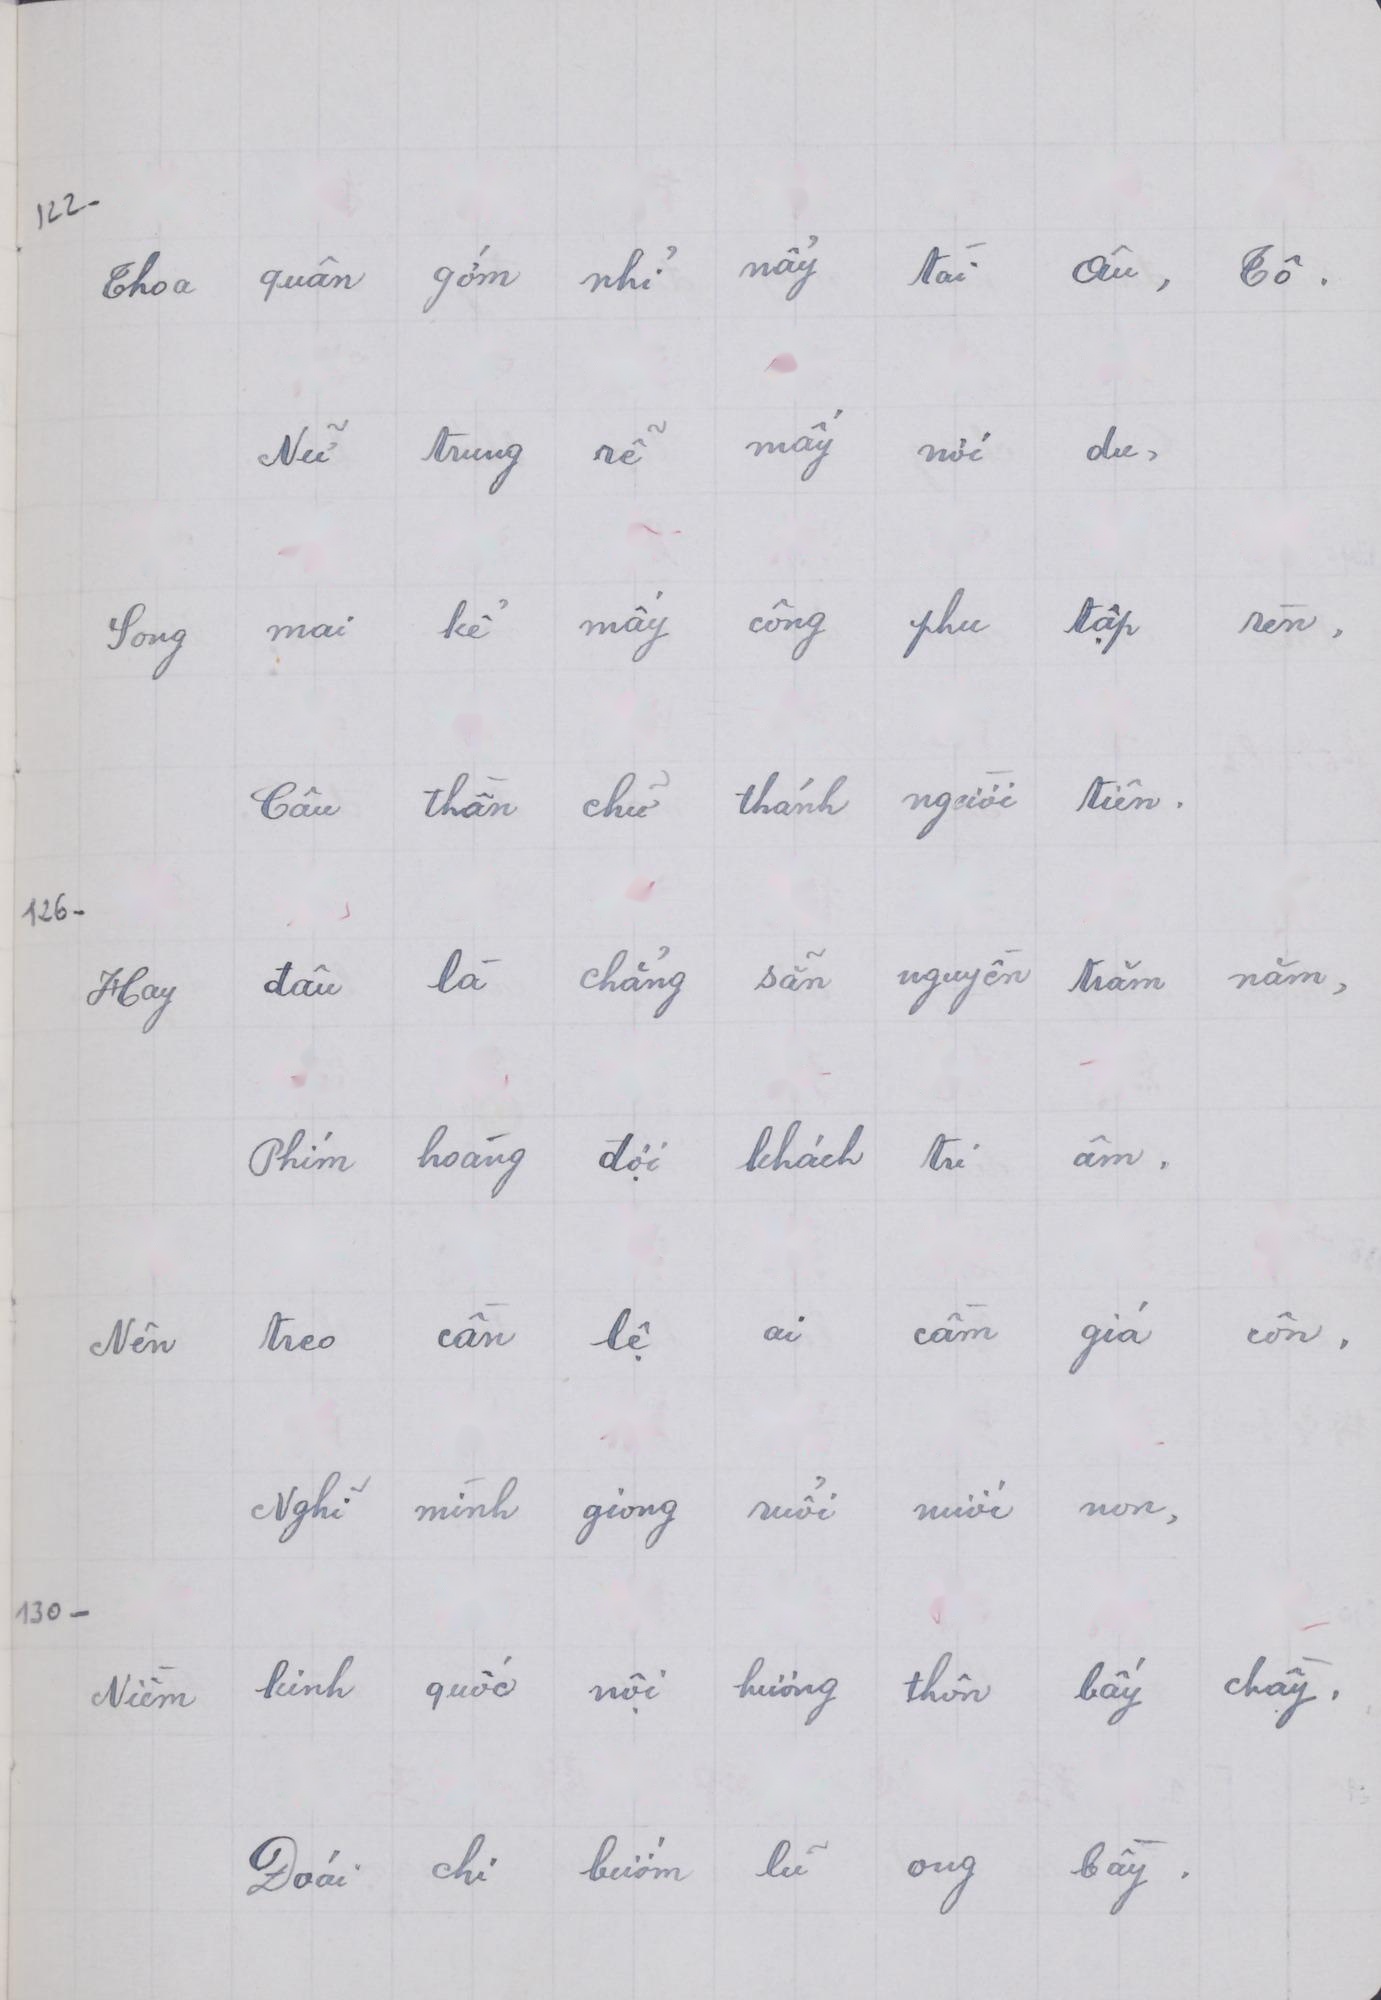 122-
Thoa quân gớm nhỉ nảy tài Âu, Tô.
Nữ trung rễ mấy nơi du,
Song mai kể mấy công phu tập rèn,
Câu thần chữ thánh người tiên.
126-
Hay đâu là chẳng sẵn nguyền trăm năm,
Phím hoàng đợi khách tri âm,
Nên treo cần lệ ai cầm giá côn,
Nghĩ mình giong ruổi nước non,
130-
Niềm kinh quốc nội hương thôn bấy chầy,
Đoái chi bướm lũ ong bầy.